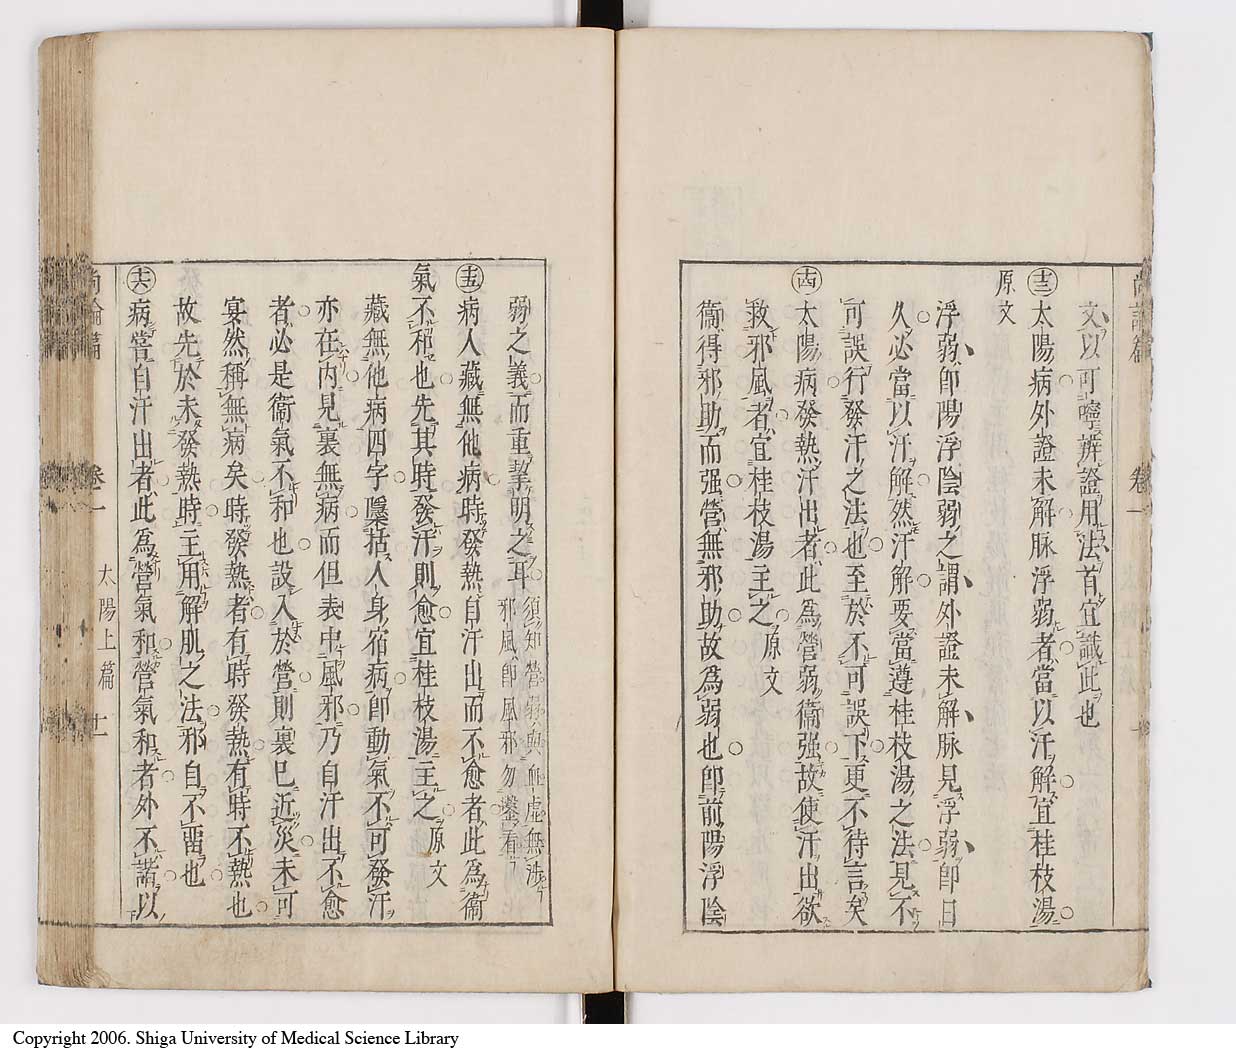 文以可嚀辨證用法首宜識此也
十三太陽病外證未解脉浮弱者當以汗解宜桂枝湯
原文
浮弱卽陽浮陰弱之謂外證未解脉見浮弱卽日
久必當以汗解然汗解要當遵桂枝湯之法見不
可誤行發汗之法也至於不可誤下更不待言矣
十四太陽病發熱汗出者此為營弱衞强故使汗出欲
救邪風者宜桂枝湯主之原文
衞得邪助而强營無邪助故為弱也卽前陽浮陰
弱之義而重挈明之耳須知營弱與血虛無涉
邪風卽風邪勿鑿看
十五病人藏無他病時發熱自汗出而不愈者此為衞
氣不和也先其時發汗則愈宜桂枝湯主之原文
藏無他病四字櫽括人身宿病卽動氣不可發汗
亦在內見裏無病而但表中風邪乃自汗出不愈
者必是衞氣不和也設入於營則裏已近災未可
宴然稱無病矣時發熱者有時發熱有時不熱也
故先於未發熱時主用解肌之法邪自不畱也
十六病嘗自汗出者此為營氣和營氣和者外不諧以
尚論篇 卷一 太陽上篇 十一
Copyright 2006. Shiga University of Medical Science Library